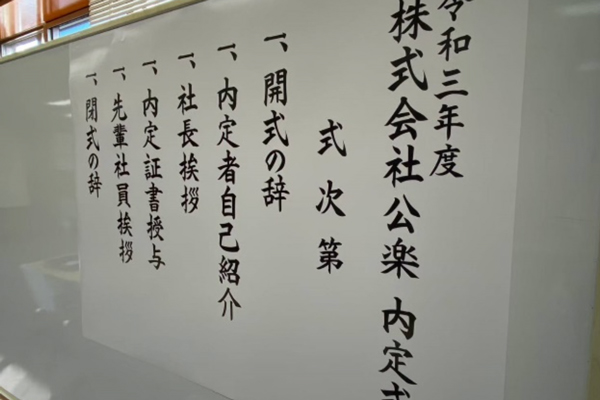 令和三年度
株式会社公楽 内定式
式次第
一、開式の辞
一、内定者自己紹介
一、社長挨拶
一、内定証書授与
一、先輩社員挨拶
一、閉式の辞